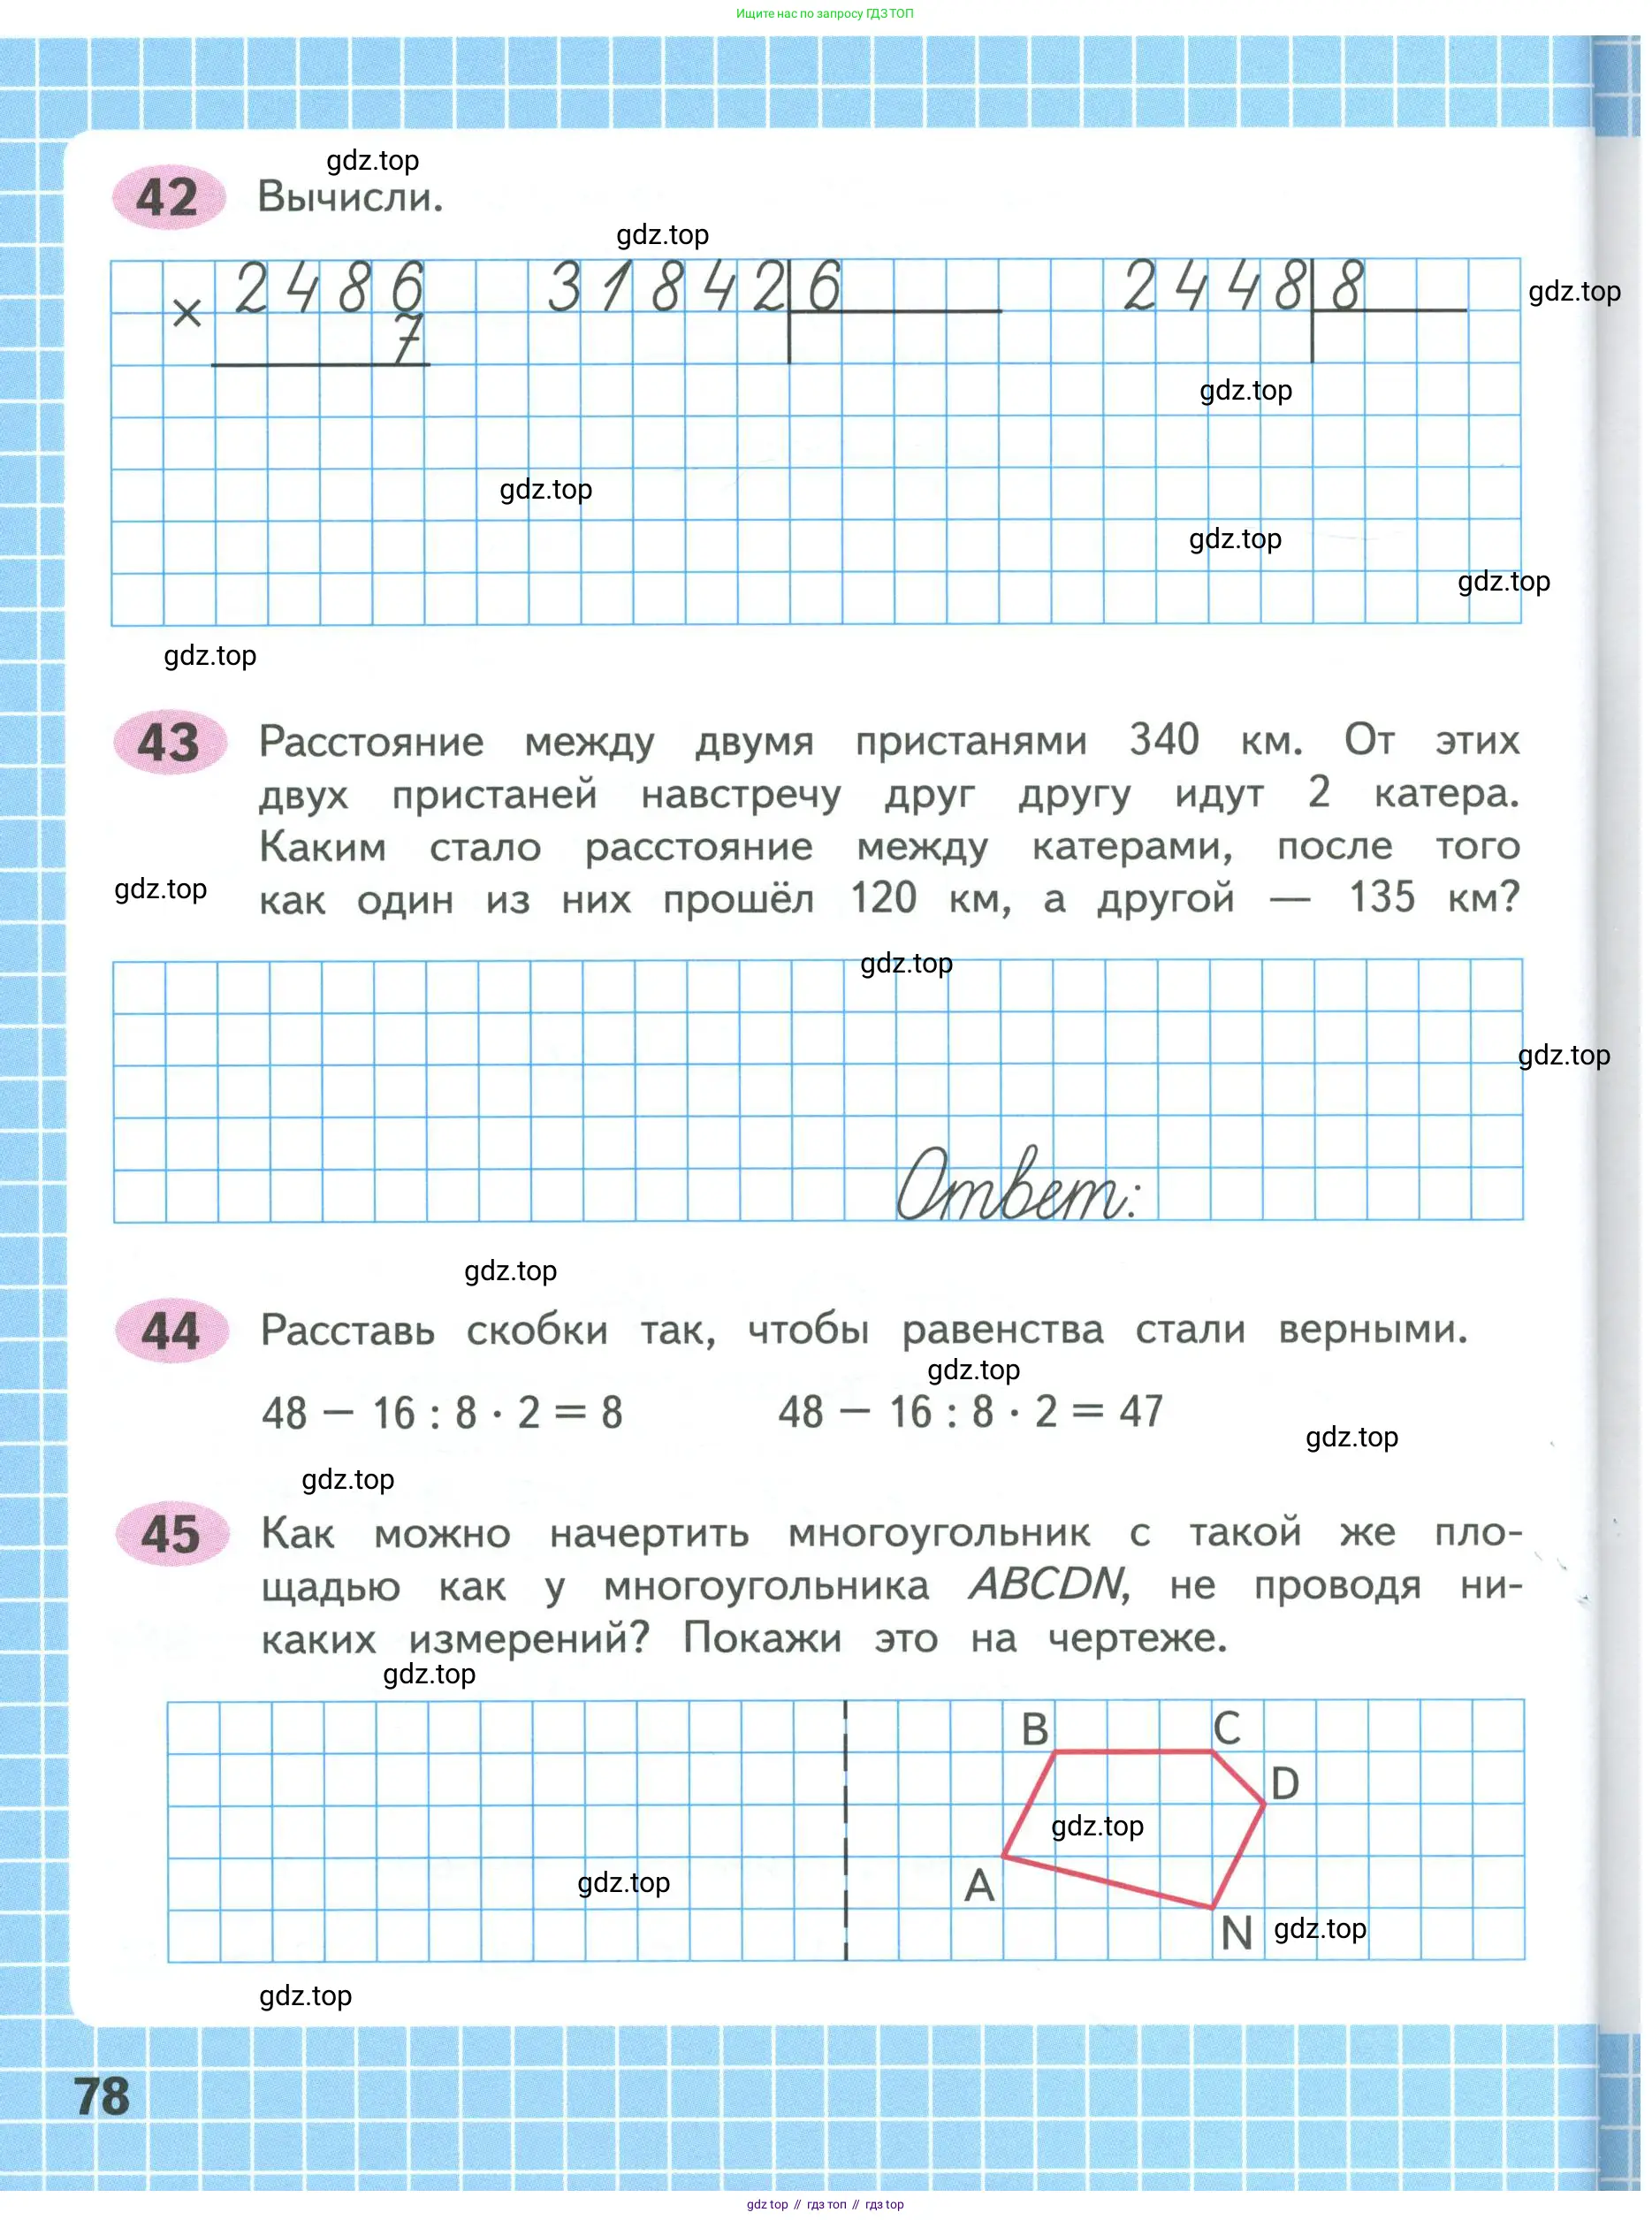 Ищите нас по запросу ГДЗ ТОП
gdz.top
42 Вычисли.
gdz.top
2486 31842 6 2448 8
× 7
gdz.top
gdz.top
gdz.top
gdz.top
gdz.top
gdz.top
43 Расстояние между двумя пристанями 340 км. От этих
двух пристаней навстречу друг другу идут 2 катера.
Каким стало расстояние между катерами, после того
как один из них прошёл 120 км, а другой — 135 км?
gdz.top
gdz.top
gdz.top
Ответ:
gdz.top
44 Расставь скобки так, чтобы равенства стали верными.
gdz.top
48 − 16 : 8 · 2 = 8 48 − 16 : 8 · 2 = 47
gdz.top
gdz.top
45 Как можно начертить многоугольник с такой же пло-
щадью как у многоугольника ABCDN, не проводя ни-
каких измерений? Покажи это на чертеже.
gdz.top
B C
D
gdz.top
A
gdz.top
N gdz.top
gdz.top
78
gdz top // гдз топ // гдз top